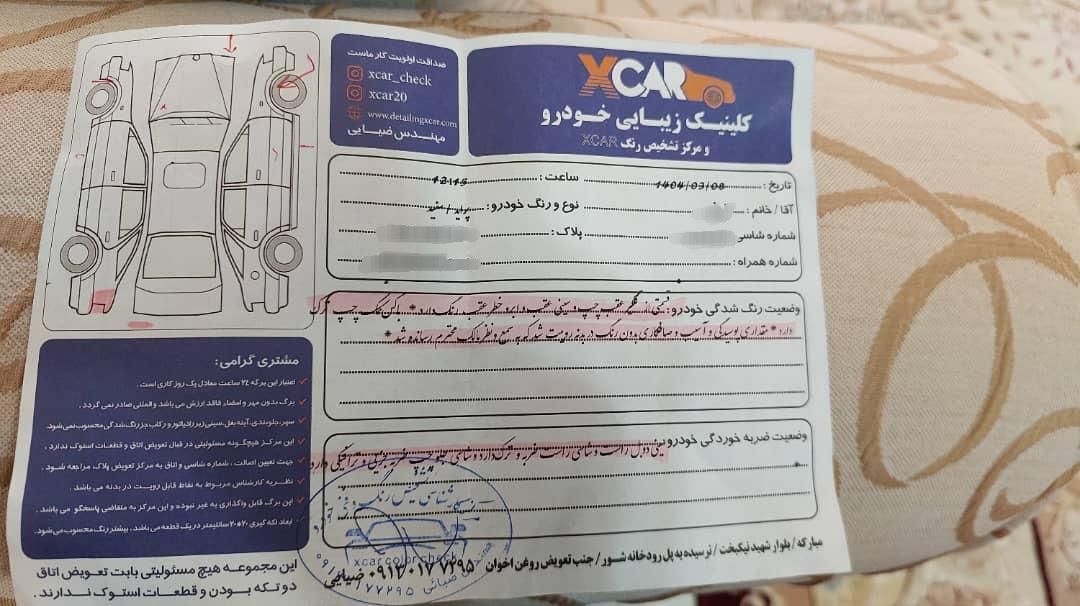 XCAR
کلینیک زیبایی خودرو
و مرکز تشخیص رنگ XCAR
صداقت اولویت کار ماست
xcar_check
xcar20
www.detailingxcar.com
مهندس ضیایی
تاریخ : 1404/03/08 ساعت : 12:15
آقا / خانم : نوع و رنگ خودرو : پراید / سفید
شماره شاسی : پلاک :
شماره همراه :
وضعیت رنگ شدگی خودرو : قسمتی از گلگیر عقب چپ و سینی عقب و رنگ دارد * باکس چپ ترک
دارد * مقداری پوسیدگی و آسیب و صافکاری بدون رنگ در بدنه رویت شد که به سمع و نظر مالک محترم رسانده شد *
وضعیت ضربه خوردگی خودرو : سینی راست و شاسی راست ضربه و ترک دارد و شاسی جلو چپ ضربه جزئی و دارد
*
مشتری گرامی :
اعتبار این برگه ٢٤ ساعت معادل یک روز کاری است .
برگ بدون مهر و امضاء فاقد ارزش می باشد و المثنی صادر نمی گردد .
سپر، جلوبندی، آینه بغل، سینی زیر رادیاتور و رکاب جز رنگ شدگی محسوب نمی شود.
این مرکز هیچگونه مسئولیتی در قبال تعویض اتاق و قطعات استوک ندارد .
جهت تعیین اصالت ، شماره شاسی و اتاق به مرکز تعویض پلاک مراجعه شود .
نظریه کارشناس مربوط به نقاط قابل رویت در بدنه می باشد .
این برگ قابل واگذاری به غیر نبوده و این مرکز به متقاضی پاسخگو می باشد .
ابعاد لکه گیری ٢٠*٢٠ سانتیمتر در یک قطعه می باشد، بیشتر رنگ محسوب می شود.
این مجموعه هیچ مسئولیتی بابت تعویض اتاق
دو تکه بودن و قطعات استوک ندارند .
کارشناسی تشخیص رنگ
xcarcolorcheck
مهندس ضیائی
مبارکه / بلوار شهید نیکبخت / نرسیده به پل رودخانه شور / جنب تعویض روغن اخوان
٠٩١٣٠١٧٧٢٩٥ ضیایی